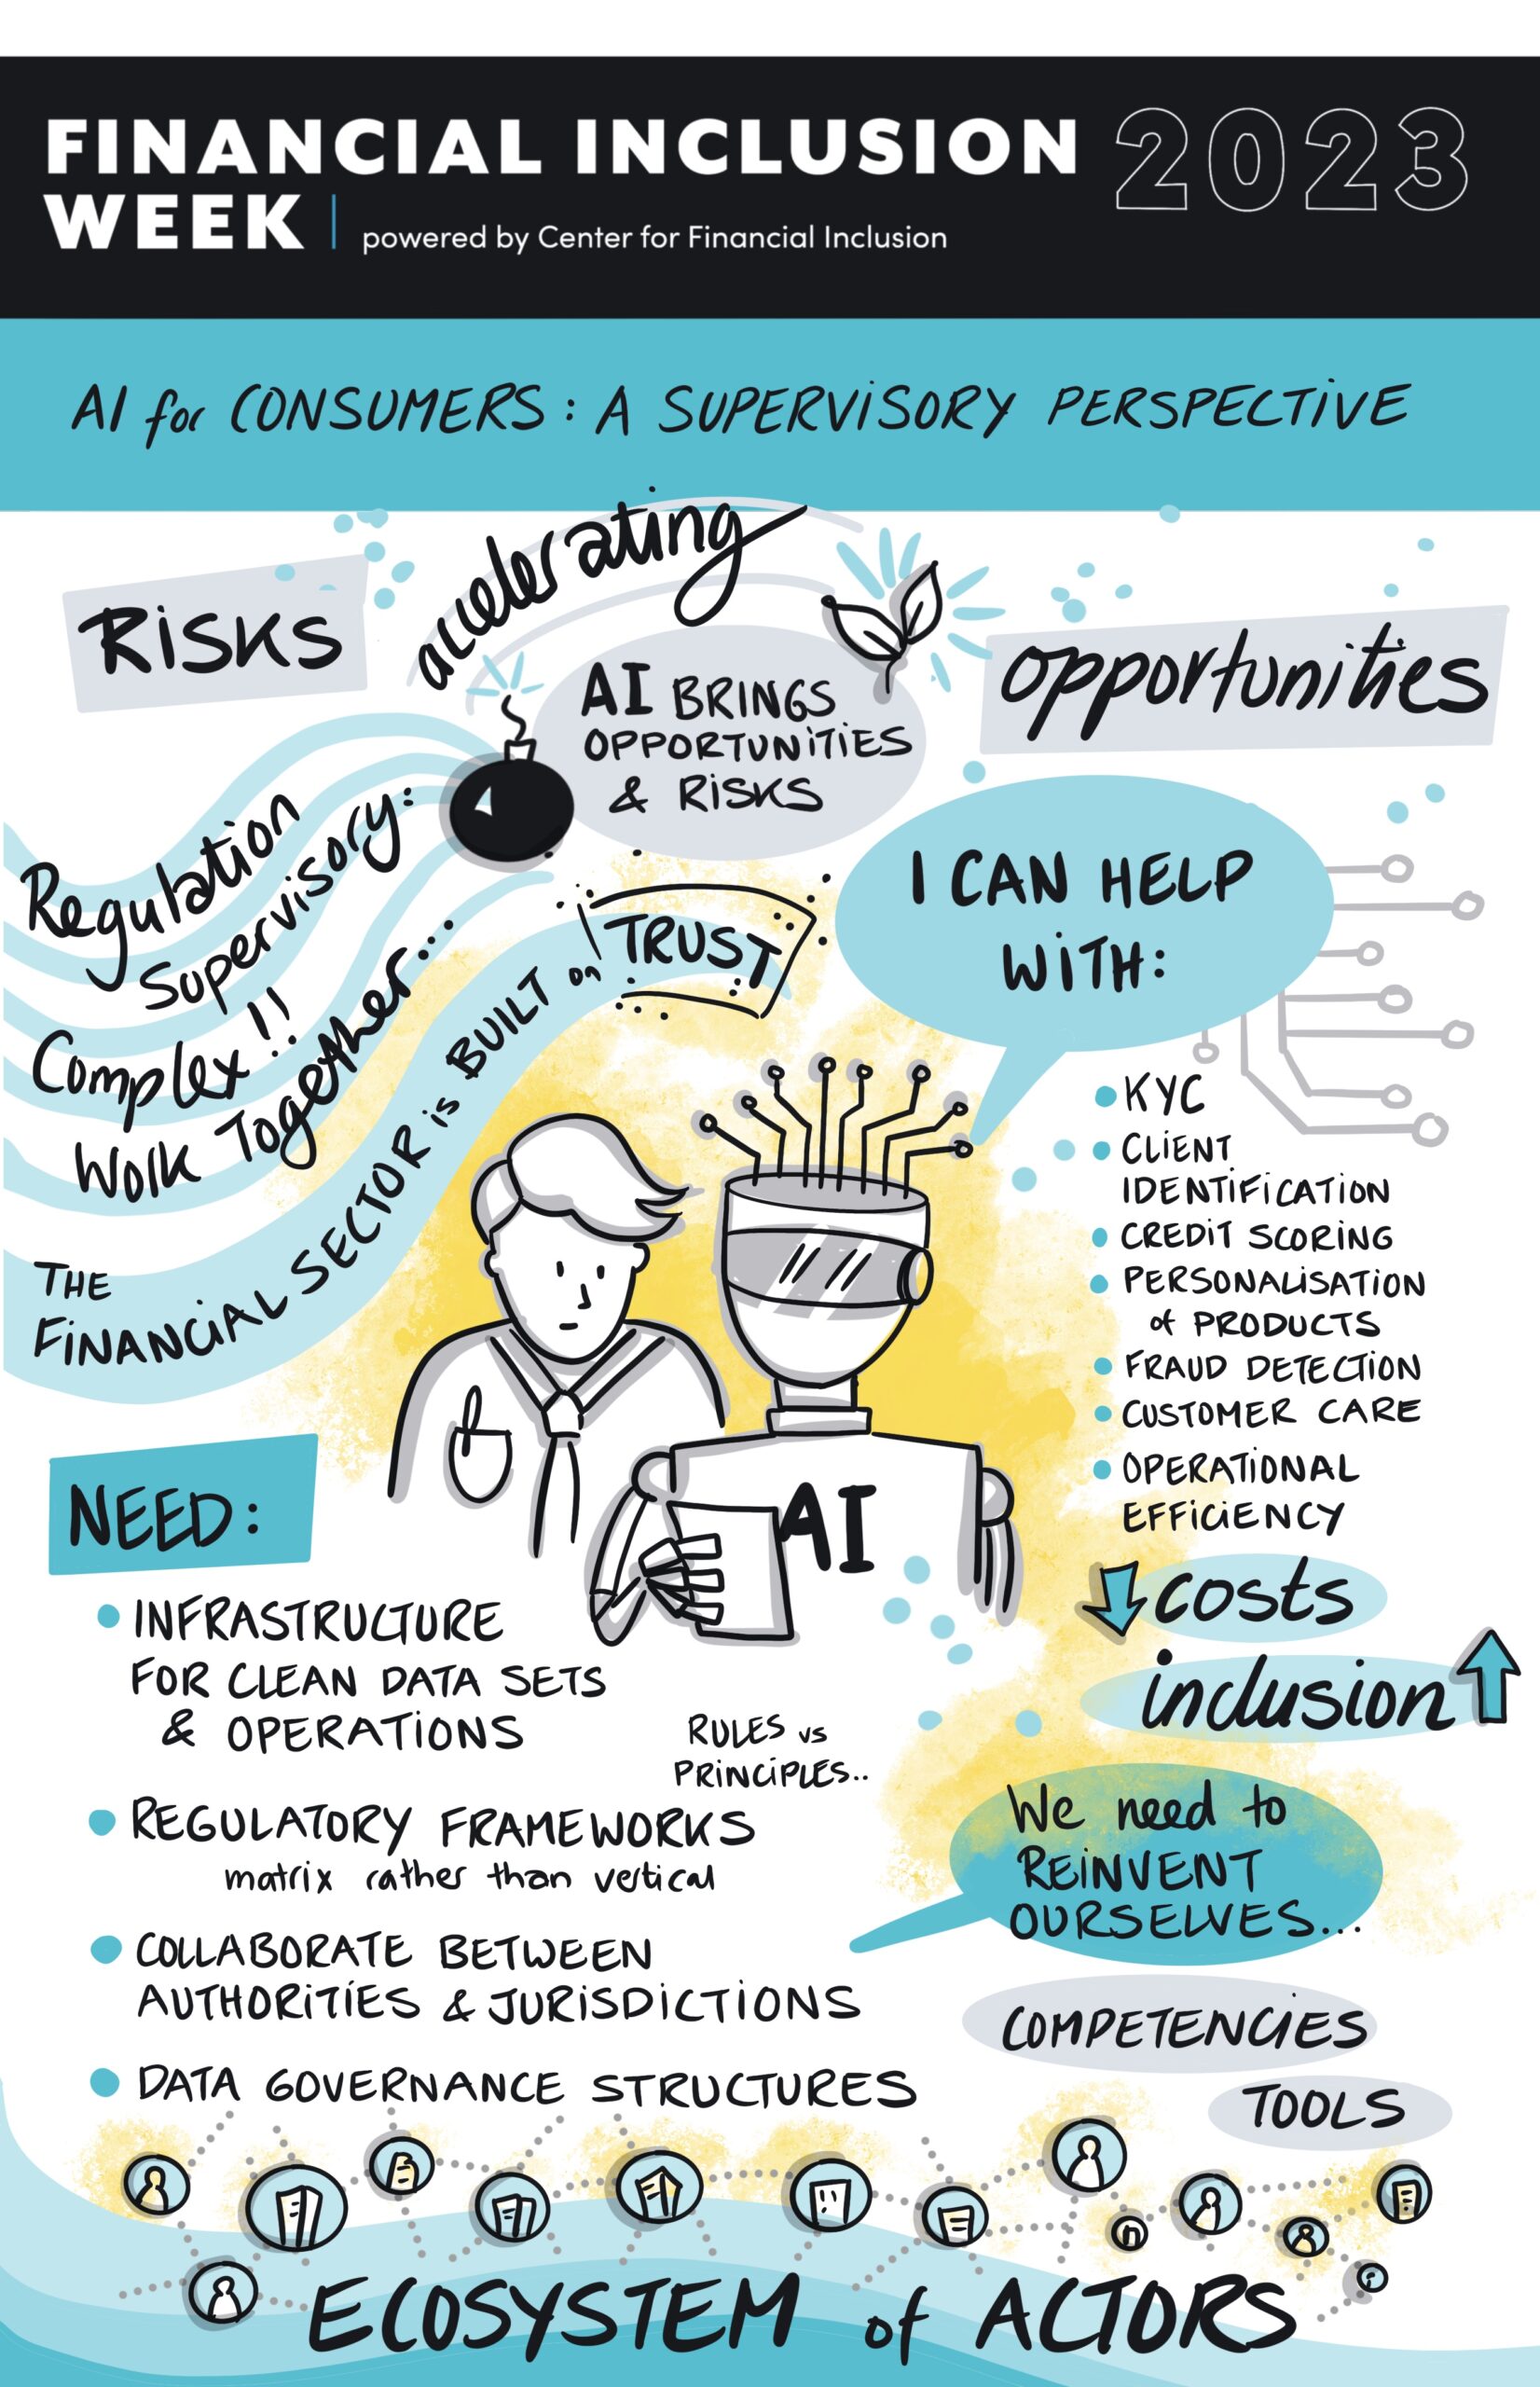 FINANCIAL INCLUSION 2023
WEEK | powered by Center for Financial Inclusion
AI for CONSUMERS : A SUPERVISORY PERSPECTIVE
RISKS
accelerating
opportunities
AI BRINGS
OPPORTUNITIES
& RISKS
Regulation
Supervisory:
Complex!!
Work Together...
THE
FINANCIAL SECTOR is BUILT on TRUST
I CAN HELP
WITH:
• KYC
• CLIENT
IDENTIFICATION
• CREDIT SCORING
• PERSONALISATION
of PRODUCTS
• FRAUD DETECTION
• CUSTOMER CARE
• OPERATIONAL
EFFICIENCY
costs
inclusion
AI
NEED:
• INFRASTRUCTURE
FOR CLEAN DATA SETS
& OPERATIONS
RULES vs
PRINCIPLES..
• REGULATORY FRAMEWORKS
matrix rather than vertical
• COLLABORATE BETWEEN
AUTHORITIES & JURISDICTIONS
• DATA GOVERNANCE STRUCTURES
We need to
REINVENT
OURSELVES...
COMPETENCIES
TOOLS
ECOSYSTEM of ACTORS